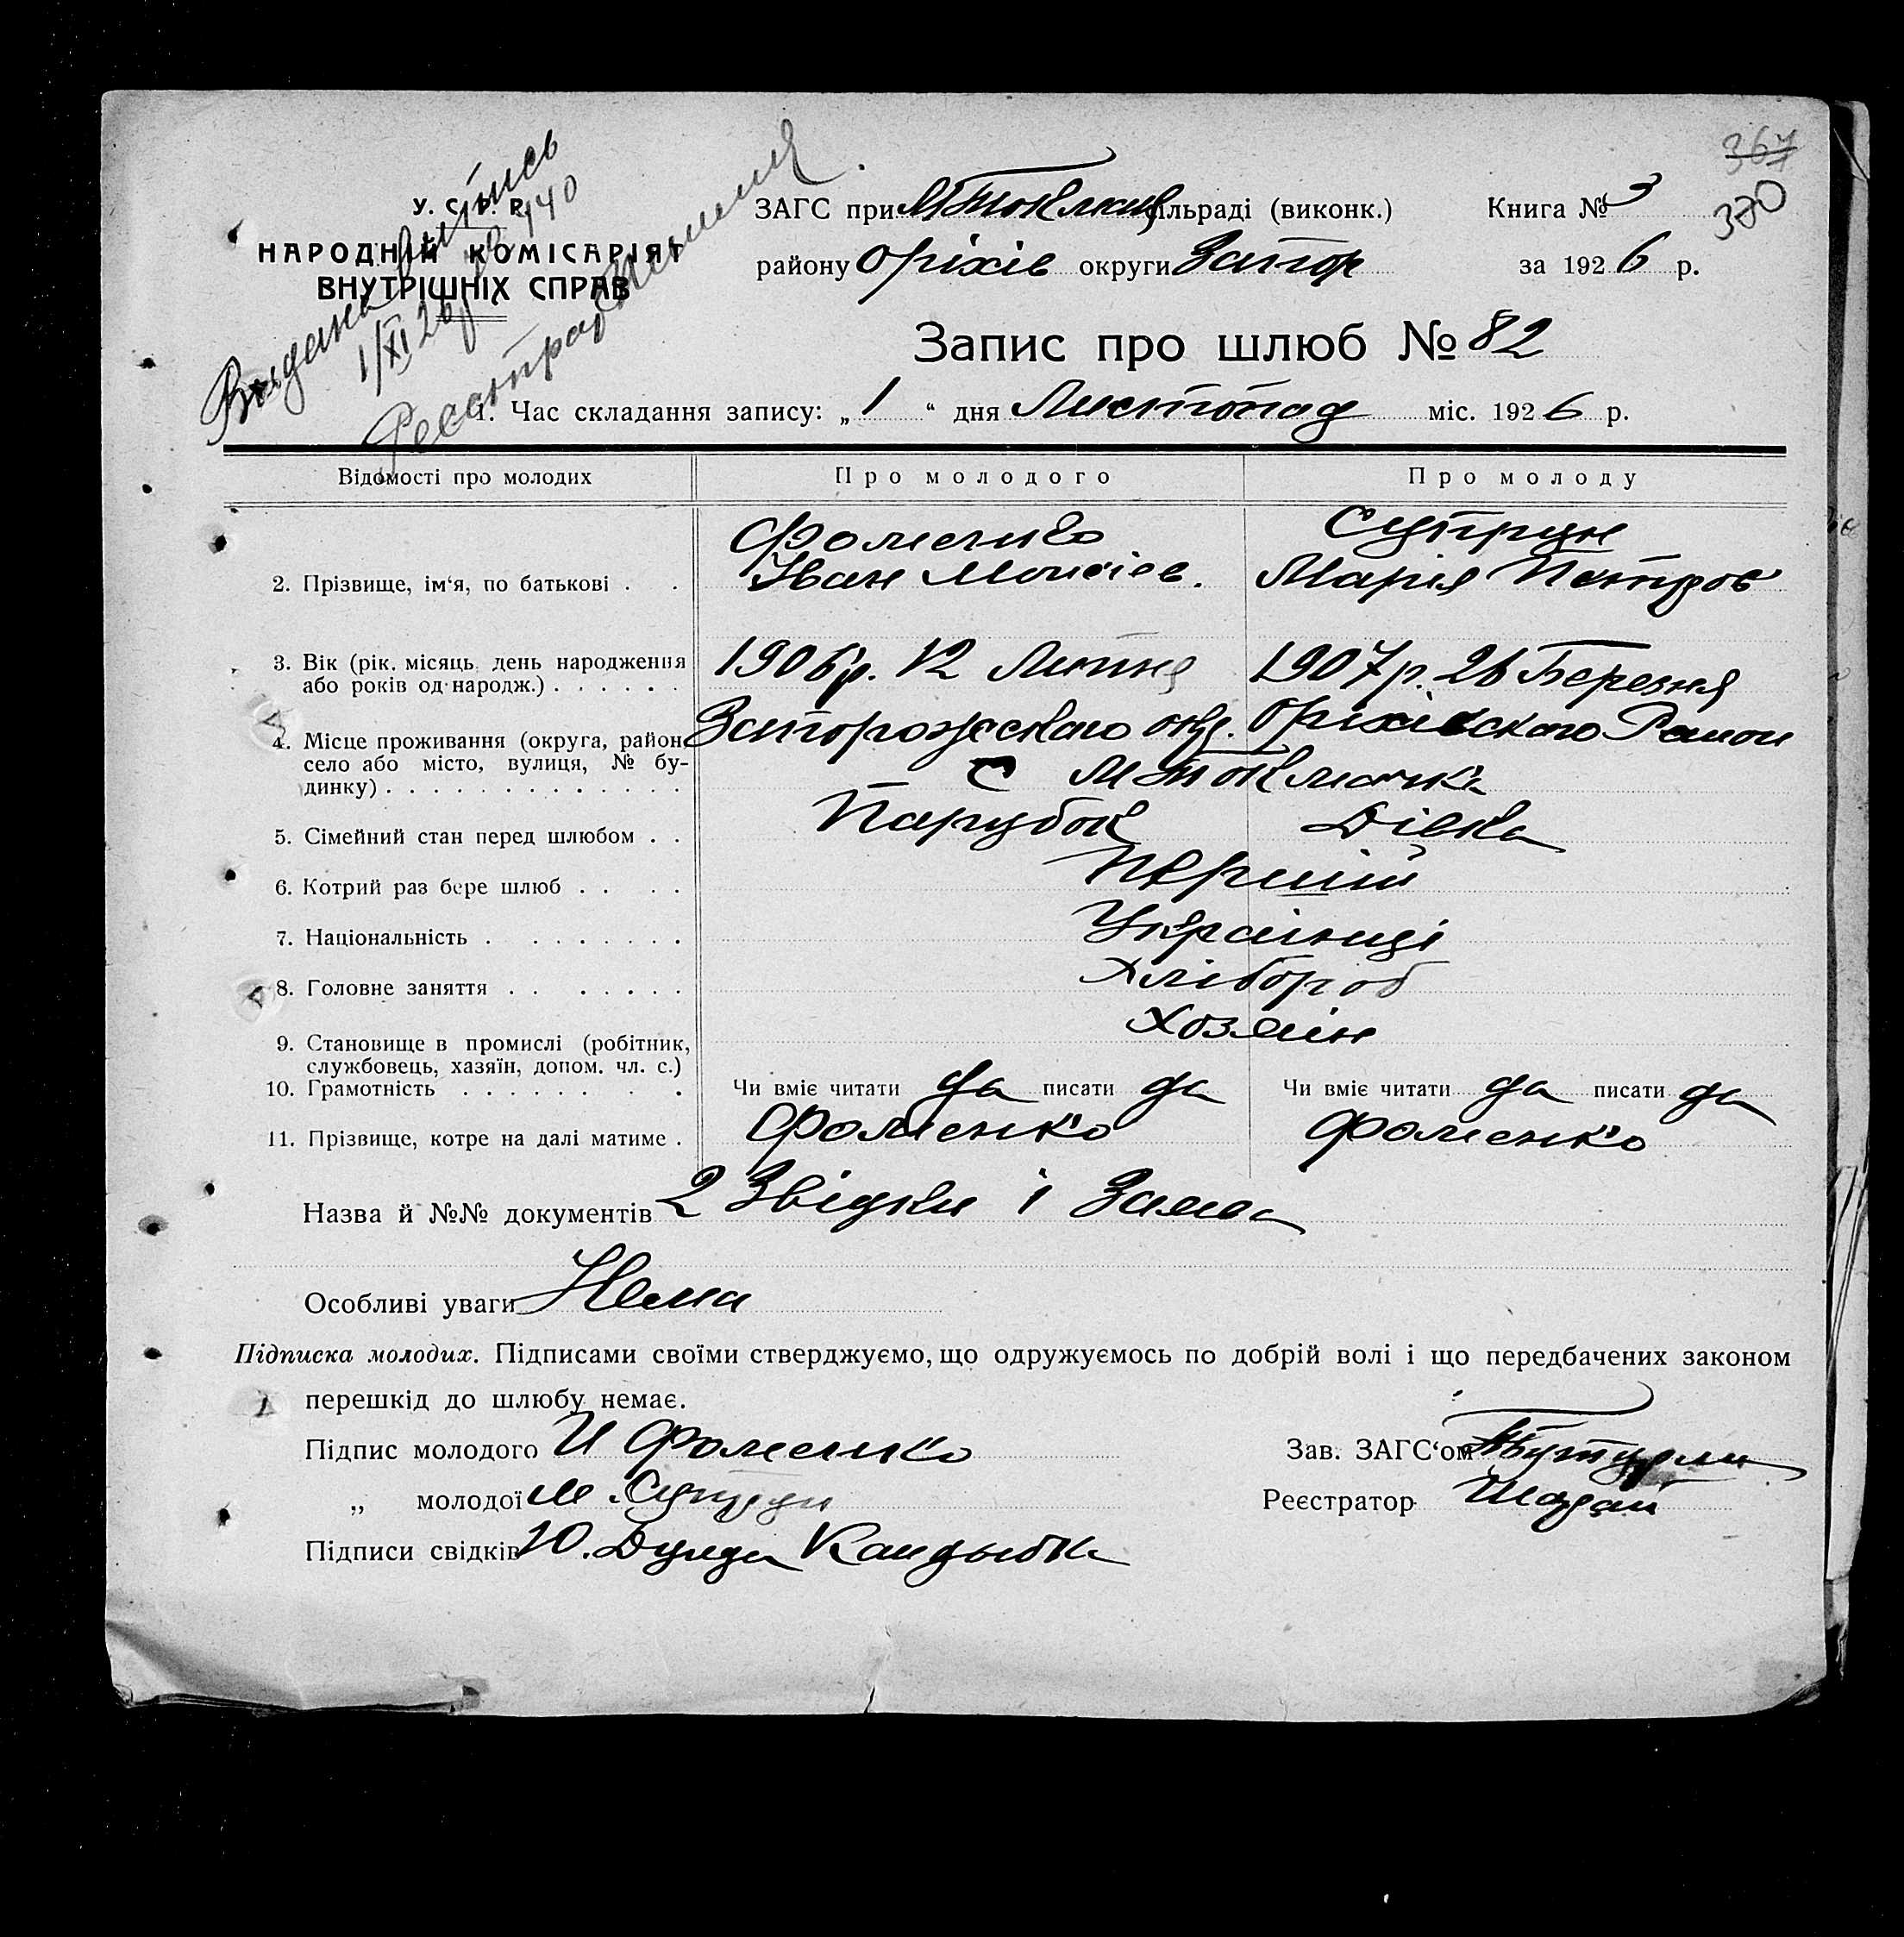 367
370
У. С. Р. Р.
НАРОДНІЙ КОМІСАРІЯТ
ВНУТРІШНІХ СПРАВ
Выдана выпись
1/XI 26 р. № 440
ЗАГС при М Токмац сільраді (виконк.) Книга № 3
району Оріхів округи Запор за 1926 р.
Запис про шлюб № 82
1. Час складання запису: „1“ дня Листопад міс. 1926 р.
Відомості про молодих Про молодого Про молоду
Фоменко Супрун
2. Прізвище, ім‘я, по батькові . . Іван Мойсіев. Марія Петров
3. Вік (рік, місяць, день народження 1906 р. 12 Липня 1907 р. 26 Березня
або років од народж.) . . . . . .
Запорожеского окр. Оріхівского Район
4. Місце проживання (округа, район,
село або місто, вулиця, № бу- с М Токмачка
динку) . . . . . . . . . . . . .
5. Сімейний стан перед шлюбом . . Парубок Дівка
6. Котрий раз бере шлюб . . . . Першій
7. Національність . . . . . . . . Українці
8. Головне заняття . . . . . . . Хлібороб
9. Становище в промислі (робітник, Хозяін
службовець, хазяїн, допом. чл. с.)
10. Грамотність . . . . . . . . Чи вміє читати да писати да Чи вміє читати да писати да
11. Прізвище, котре на далі матиме . Фоменко Фоменко
Назва й №№ документів 2 Звідки і Заява
Особливі уваги Нема
Підписка молодих. Підписами своїми стверджуємо, що одружуємось по добрій волі і що передбачених законом
перешкід до шлюбу немає.
Підпис молодого И Фоменко Зав. ЗАГС‘ом
„ молодої М. Супрун Реєстратор
Підписи свідків Ю. Дулда Кандыбка